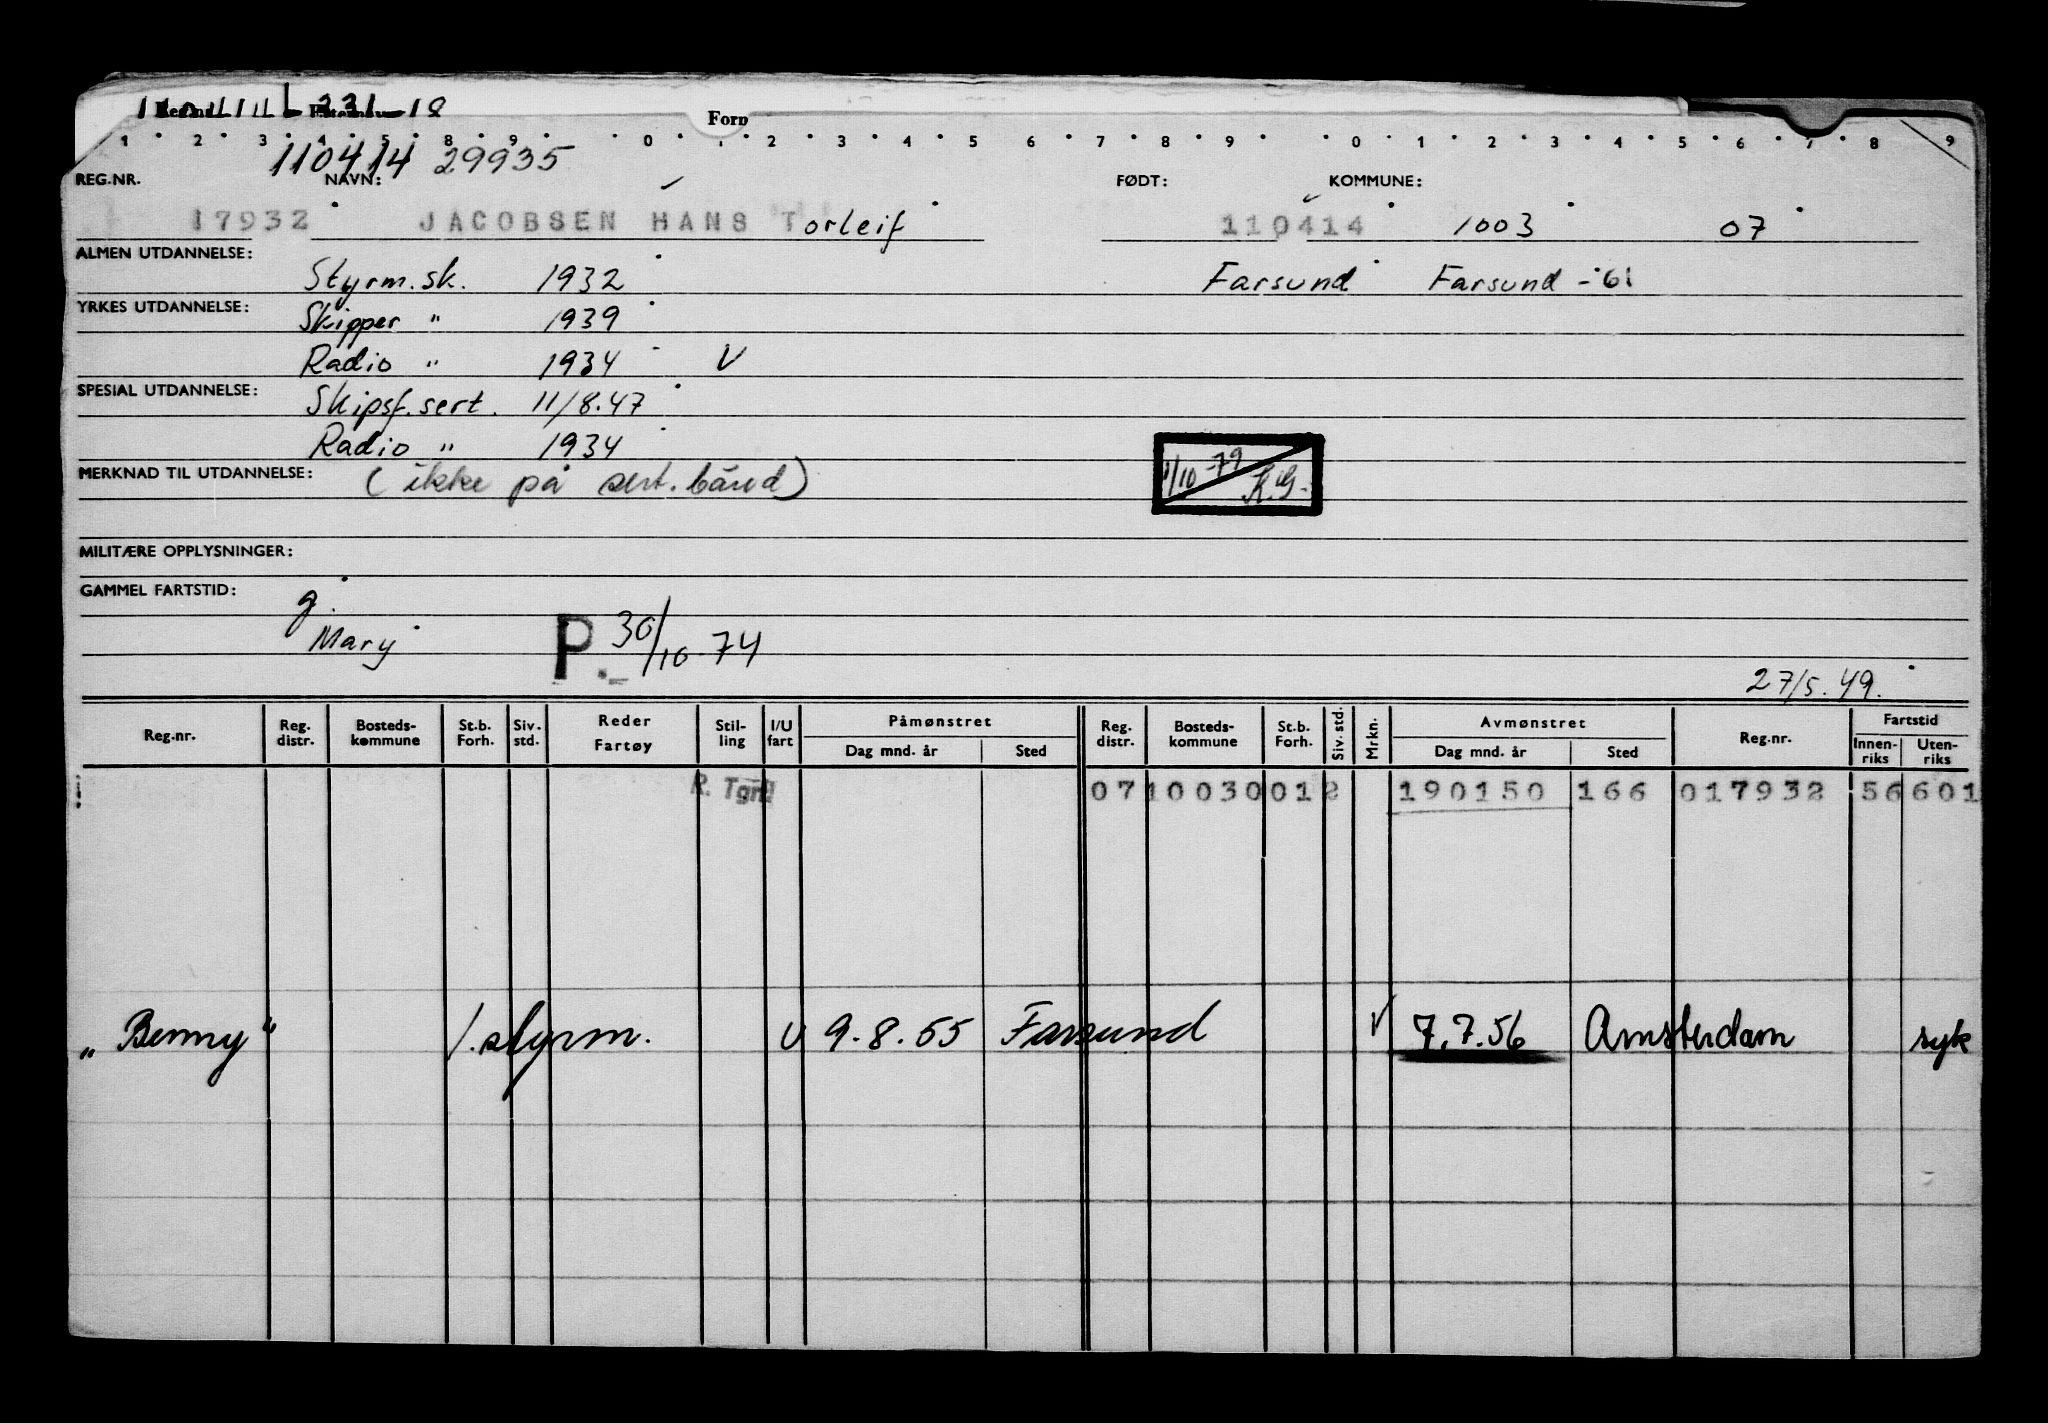 Forn
1 2 3 4 5 8 9 0 1 2 3 4 5 6 7 8 9 0 1 2 3 4 5 6 7 8 9
110414 29935
REG.NR. NAVN: FØDT: KOMMUNE:
17932 JACOBSEN HANS Torleif 110414 1003 07
ALMEN UTDANNELSE: Styrm.sk. 1932 Farsund Farsund -61
YRKES UTDANNELSE: Skipper " 1939
Radio " 1934 V
SPESIAL UTDANNELSE: Skipsf.sert. 11/8.47
Radio " 1934
MERKNAD TIL UTDANNELSE: (ikke på sert. bånd) 1/10-79 K.G.
MILITÆRE OPPLYSNINGER:
GAMMEL FARTSTID: g.
Mary P. 30/10-74
27/5.49.
Reg.nr. Reg. distr. Bosteds-kommune St.b. Forh. Siv. std. Reder Fartøy Stil-ling I/U fart Påmønstret Dag mnd. år Sted Reg. distr. Bosteds-kommune St.b. Forh. Siv. std. Mrkn. Avmønstret Dag mnd. år Sted Reg.nr. Fartstid Innen-riks Uten-riks
R. Tgr. 07 10030012 190150 166 017932 56601
"Benny" 1.styrm. U 9.8.55 Farsund V 7.7.56 Amsterdam syk